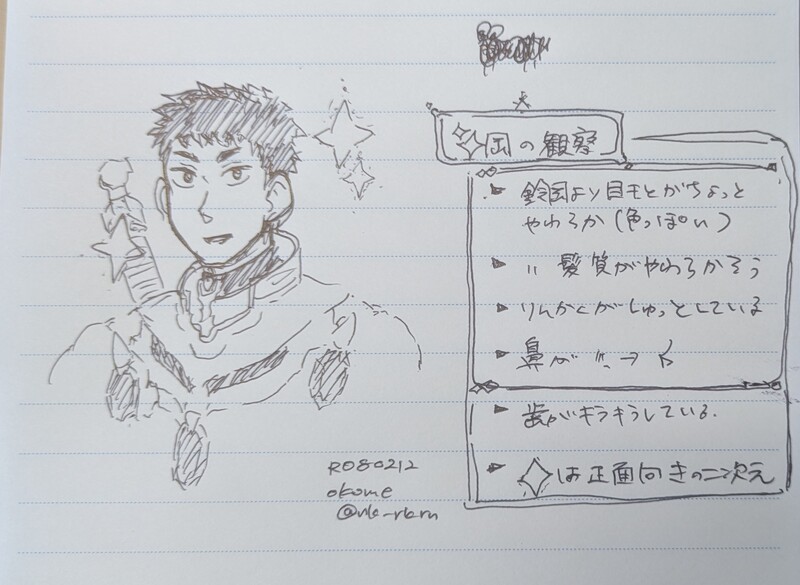 岡の観察
鈴岡より目モとがちょっと
やわらか(色っぽい)
〃 髪質がやわらかそう
りんかくがしゅっとしている
鼻が 〃 →
歯がキラキラしている.
は正面向きの二次元
R080212
okome